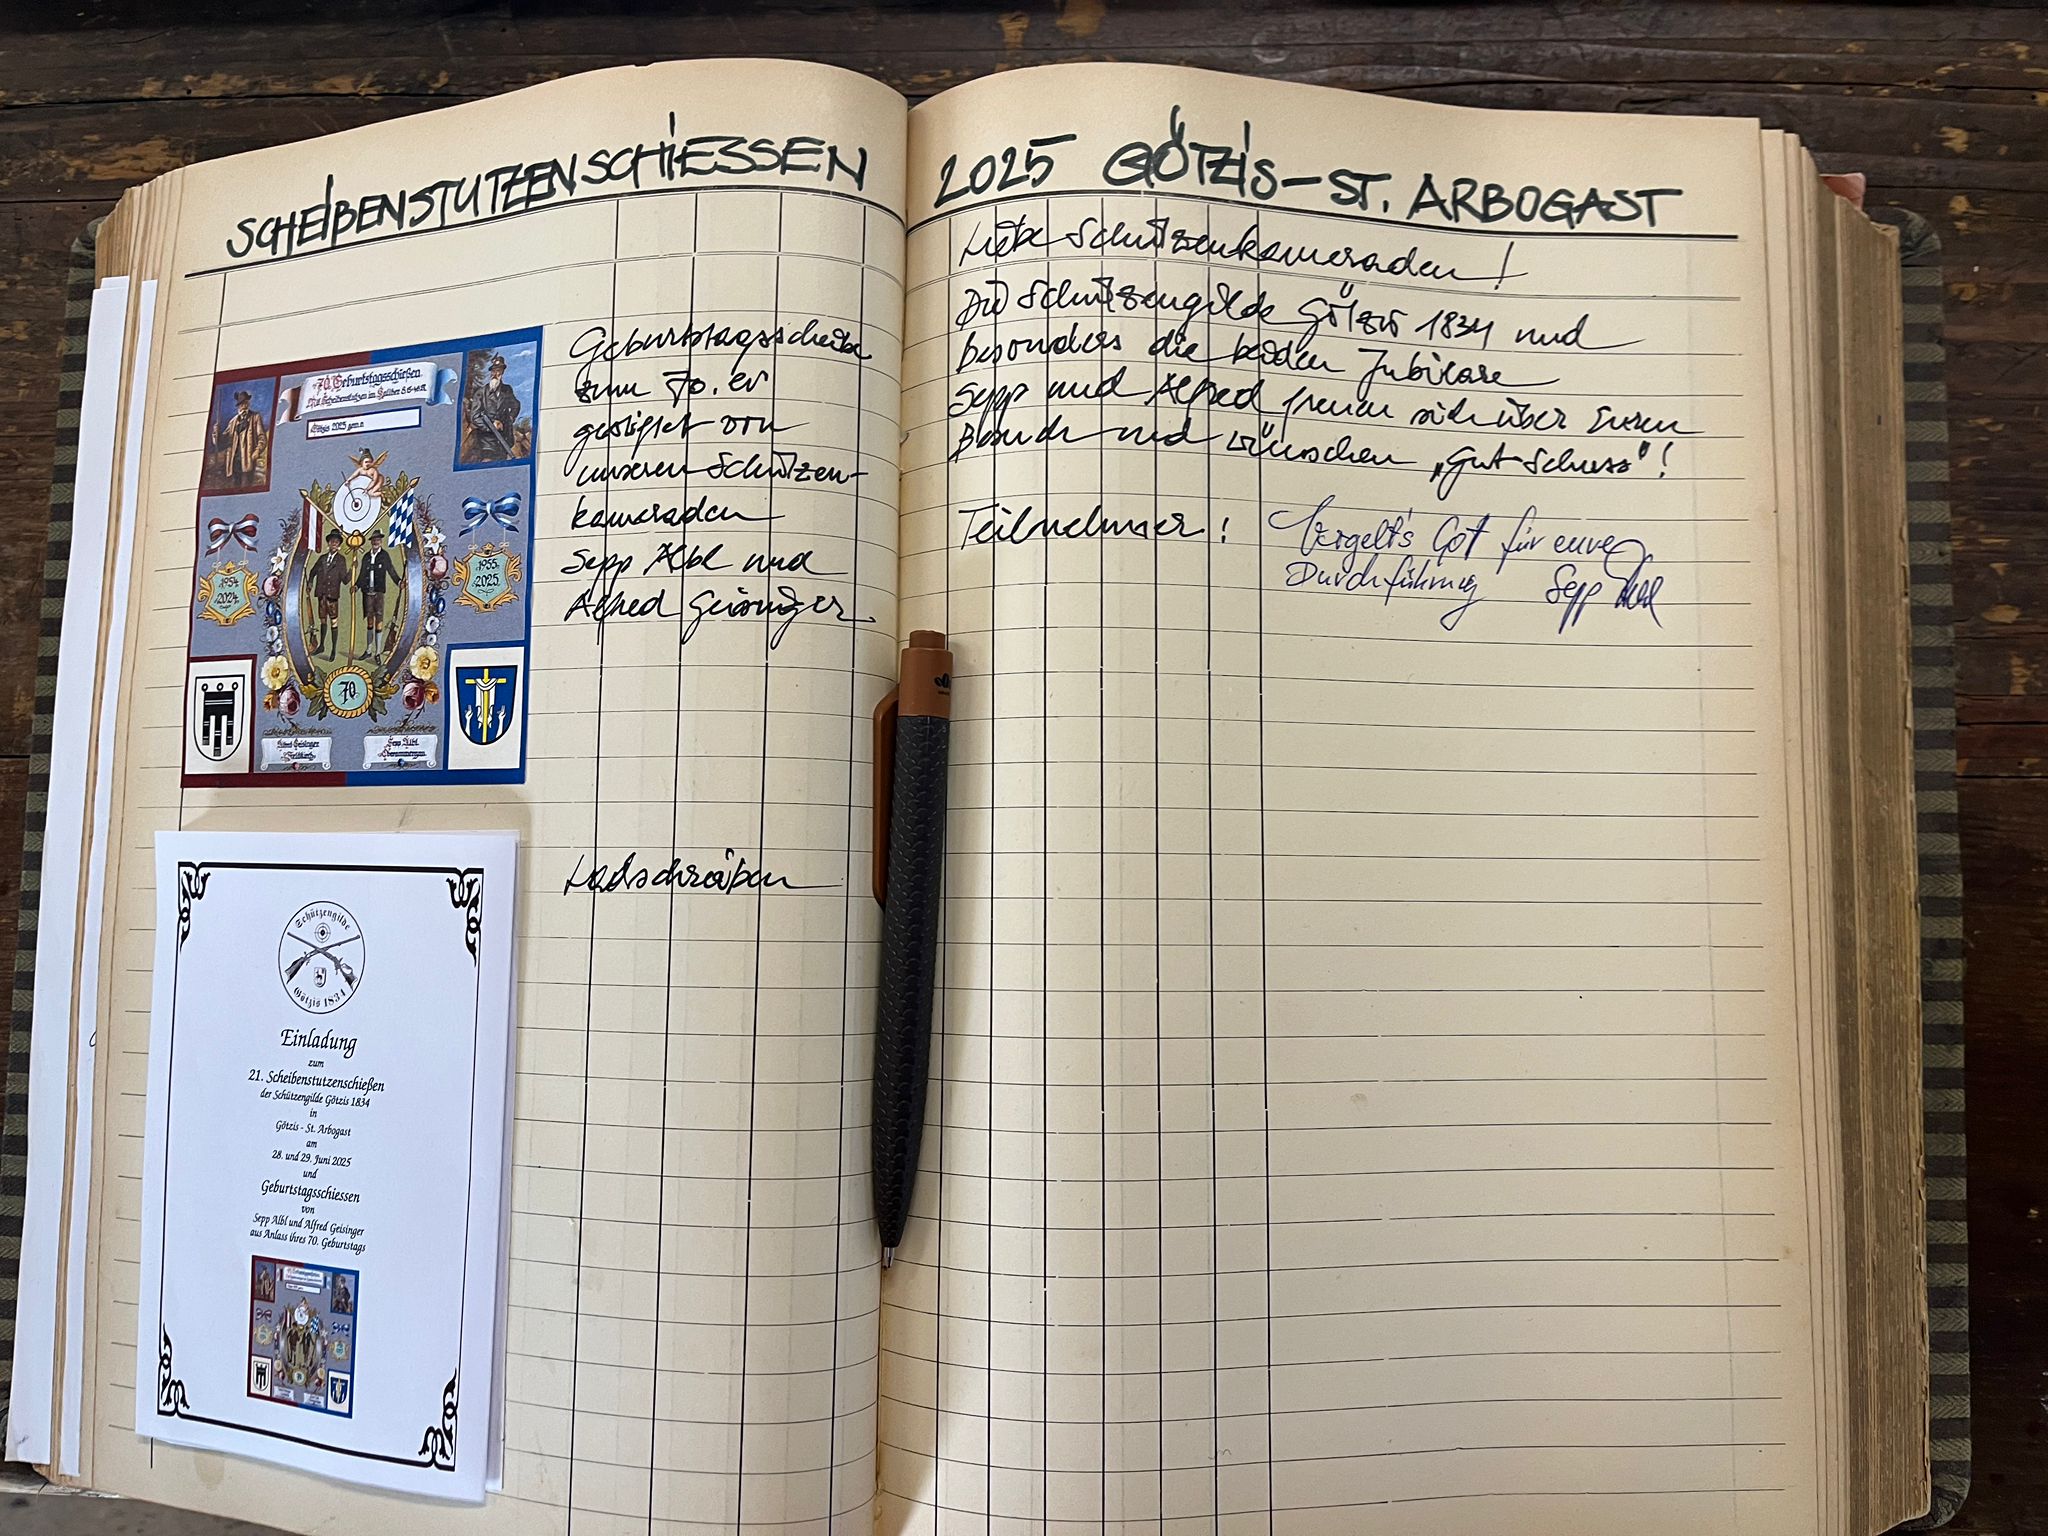 SCHEIBENSTUTZENSCHIESSEN 2025 GÖTZIS – ST. ARBOGAST
70. Geburtstagsschießen
Mit Scheibenstutzen im
Götzis 2025
1954
2024
1955
2025
70
Alfred Geisinger
Feldkirch
Sepp Albl
Oberammergau
Geburtstagsscheibe
zum 70. er
gestiftet von
unseren Schützen-
kameraden
Sepp Albl und
Alfred Geisinger.
Ladschreiben
Schützengilde
Götzis 1834
Einladung
zum
21. Scheibenstutzenschießen
der Schützengilde Götzis 1834
in
Götzis - St. Arbogast
am
28. und 29. Juni 2025
und
Geburtstagsschiessen
von
Sepp Albl und Alfred Geisinger
aus Anlass ihres 70. Geburtstags
Liebe Schützenkameraden!
Die Schützengilde Götzis 1834 und
besonders die beiden Jubilare
Sepp und Alfred freuen sich über Euren
Besuch und wünschen „Gut Schuss"!
Teilnehmer:
Vergelt's Got für eure
Durchführung Sepp Albl